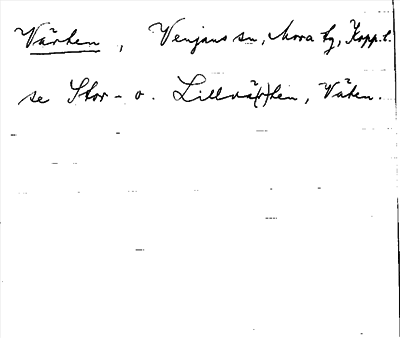 Värken, Venjans sn, Mora tg, Kopp. l.
se Stor- o. Lillvä(r)ken, Väken.